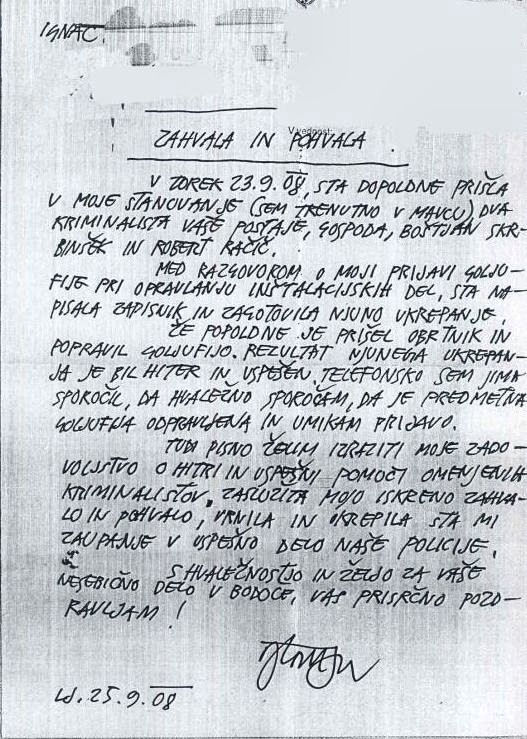 IGNAC.
V vednost:
ZAHVALA IN POHVALA.
V TOREK 23.9.08, STA DOPOLDNE PRIŠLA
V MOJE STANOVANJE (SEM TRENUTNO V MAVCU) DVA
KRIMINALISTA VAŠE POSTAJE, GOSPODA, BOŠTJAN SKR-
BINŠEK IN ROBERT RAČIČ.
MED RAZGOVOROM O MOJI PRIJAVI GOLJU-
FIJE PRI OPRAVLANJU INŠTALACIJSKIH DEL, STA NA-
PISALA ZAPISNIK IN ZAGOTOVILA NJUNO UKREPANJE.
ŽE POPOLDNE JE PRIŠEL OBRTNIK IN
POPRAVIL GOLJUFIJO. REZULTAT NJUNEGA UKREPAN-
JA JE BIL HITER IN USPEŠEN. TELEFONSKO SEM JIMA
SPOROČIL, DA HVALEŽNO SPOROČAM, DA JE PREDMETNA
GOLJUFIJA ODPRAVLJENA IN UMIKAM PRIJAVO.
TUDI PISNO ŽELIM IZRAZITI MOJE ZADO-
VOLJSTVO O HITRI IN USPEŠNI POMOČI OMENJENIH
KRIMINALISTOV. ZASLUŽITA MOJO ISKRENO ZAHVA-
LO IN POHVALO, VRNILA IN OKREPILA STA MI
ZAUPANJE V USPEŠNO DELO NAŠE POLICIJE.
S HVALEŽNOSTJO IN ŽELJO ZA VAŠE
NESEBIČNO DELO V BODOČE, VAS PRISRČNO POZD-
RAVLJAM!
LJ. 25.9.08